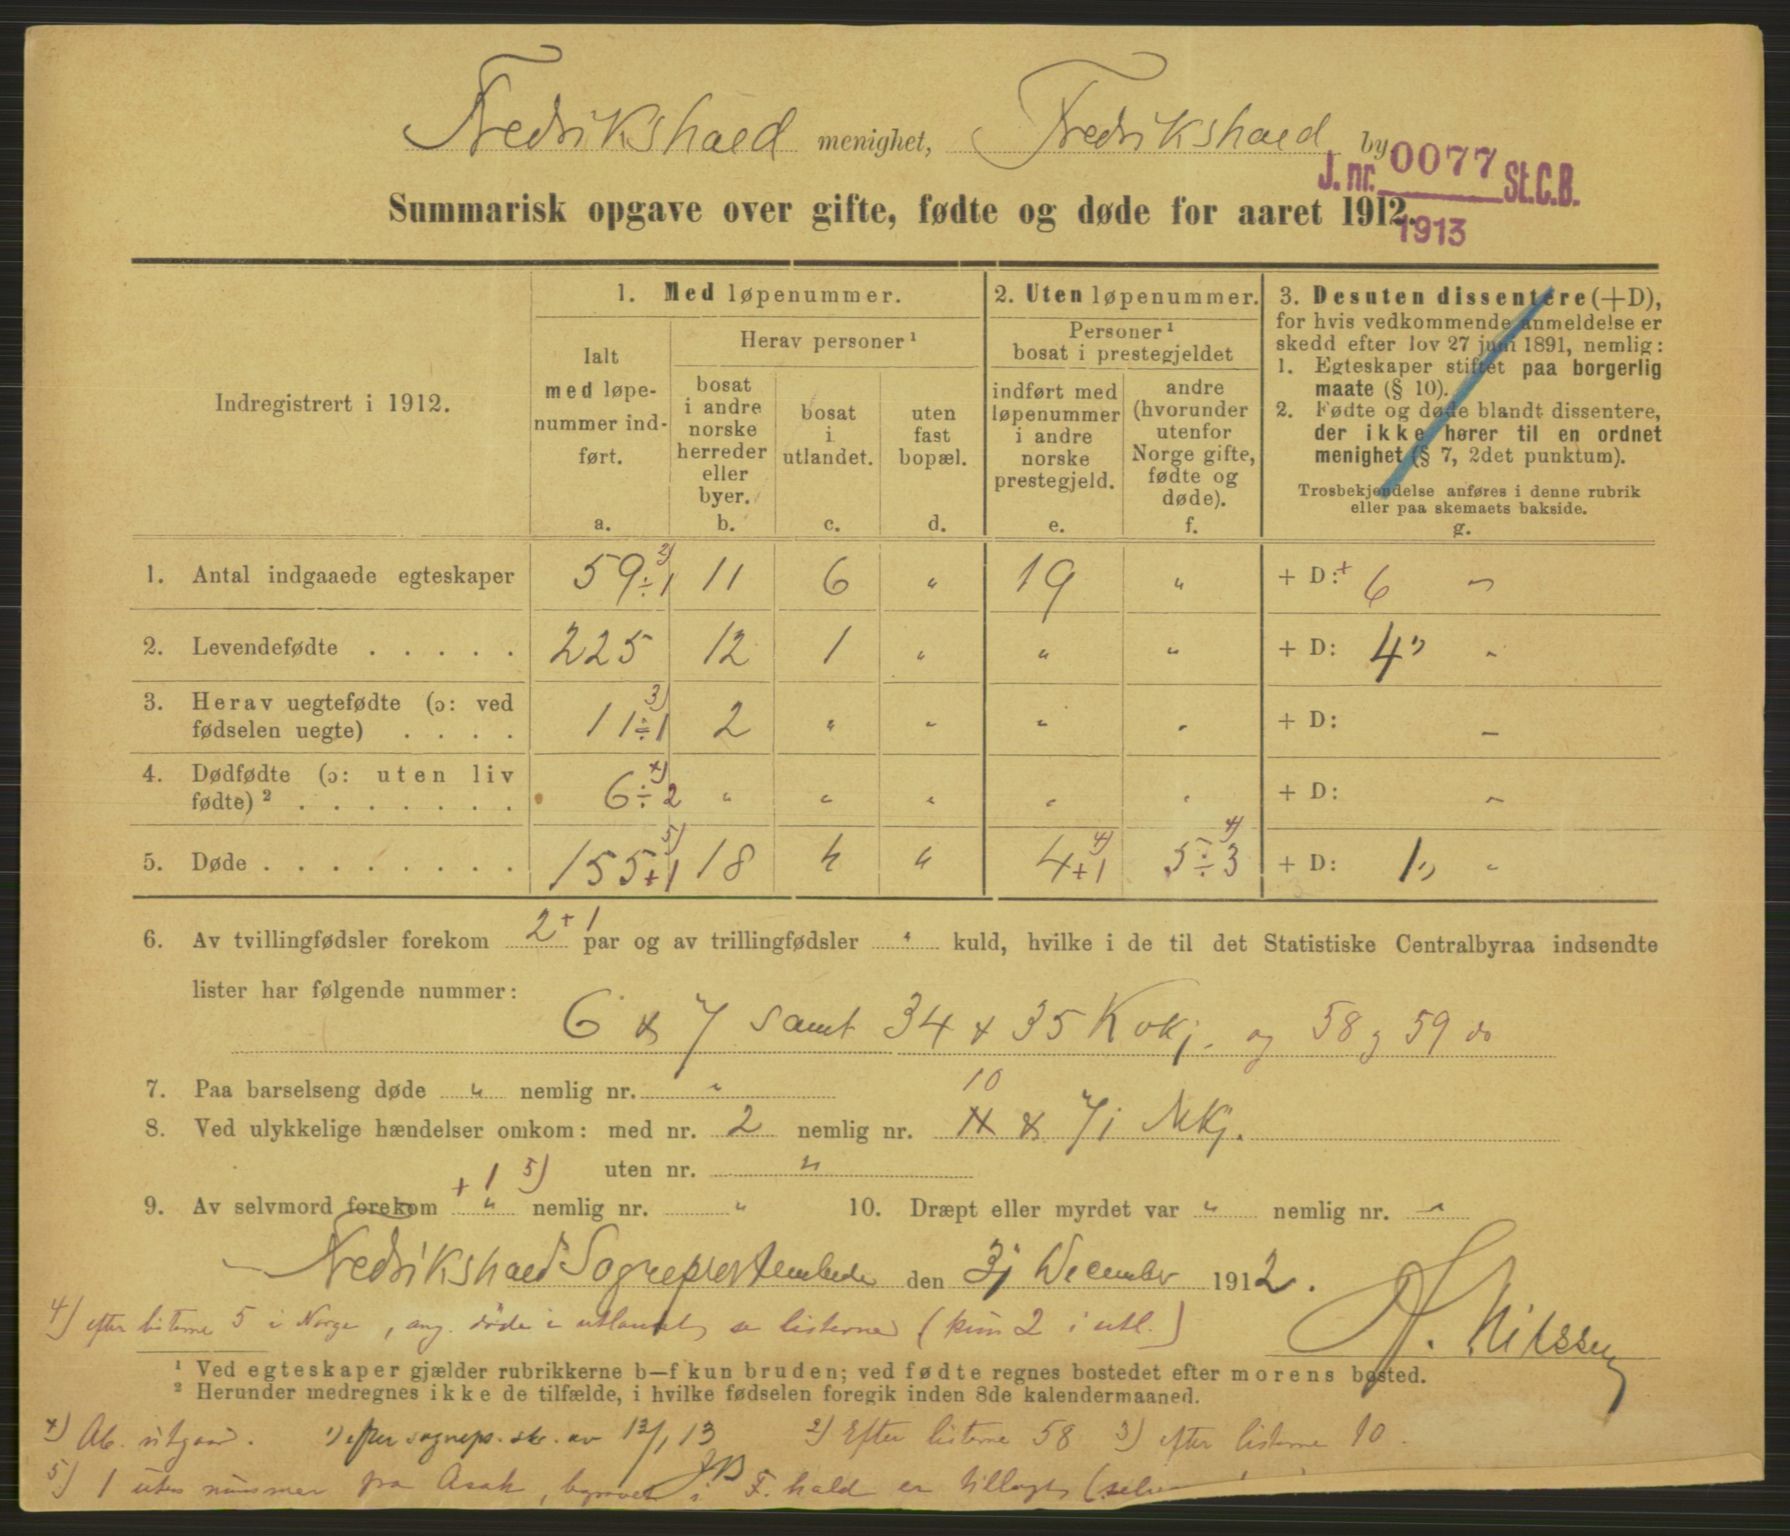 Fredrikshald menighet, Fredrikshald by
J. nr. 0077 St.C.B.
1913
Summarisk opgave over gifte, fødte og døde for aaret 1912.
Indregistrert i 1912.
1. Med løpenummer.
Ialt med løpe-
nummer ind-
ført.
a.
Herav personer ¹
bosat
i andre
norske
herreder
eller
byer.
b.
bosat
i
utlandet.
c.
uten
fast
bopæl.
d.
2. Uten løpenummer.
Personer ¹
bosat i prestegjeldet
indført med
løpenummer
i andre
norske
prestegjeld.
e.
andre
(hvorunder
utenfor
Norge gifte,
fødte og
døde).
f.
3. Desuten dissentere (+D),
for hvis vedkommende anmeldelse er
skedd efter lov 27 juni 1891, nemlig:
1. Egteskaper stiftet paa borgerlig
maate (§ 10).
2. Fødte og døde blandt dissentere,
der ikke hører til en ordnet
menighet (§ 7, 2det punktum).
Trosbekjendelse anføres i denne rubrik
eller paa skemaets bakside.
g.
1. Antal indgaaede egteskaper 59 ÷ 1 2) 11 6 „ 19 „ + D: + 6 „
2. Levendefødte . . . . . 225 12 1 „ „ „ + D: 4 1) „
3. Herav uegtefødte (ɔ: ved
fødselen uegte) . . . . 11 ÷ 1 3) 2 „ „ „ „ + D: „
4. Dødfødte (ɔ: uten liv
fødte) ² . . . . . . . 6 ÷ 2 x) „ „ „ „ „ + D: „
5. Døde . . . . . . . . 155 + 1 5) 18 4 „ 4 + 1 4) 5 ÷ 3 4) + D: 1 1) „
6. Av tvillingfødsler forekom 2 + 1 par og av trillingfødsler „ kuld, hvilke i de til det Statistiske Centralbyraa indsendte
lister har følgende nummer:
6 & 7 samt 34 & 35 Kvkj. og 58 g 59 do
7. Paa barselseng døde „ nemlig nr. „
10
8. Ved ulykkelige hændelser omkom: med nr. 2 nemlig nr. & 7 i Mkj.
uten nr. „
+ 1 5)
9. Av selvmord forekom „ nemlig nr. „ 10. Dræpt eller myrdet var „ nemlig nr. „
Fredrikshald Sogneprestembede den 31 December 1912.
Nilssen
4) efter listerne 5 i Norge, ang. døde i utlandet, se listerne (kun 2 i utl.)
¹ Ved egteskaper gjælder rubrikkerne b—f kun bruden; ved fødte regnes bostedet efter morens bosted.
² Herunder medregnes ikke de tilfælde, i hvilke fødselen foregik inden 8de kalendermaaned.
x) Ab. utgaar. 1) efter sognepr. skr. av 12/1 13 2) Efter listerne 58 3) efter listerne 10.
5) 1 uten nummer fra Asak, begravet i F.hald er tillagt